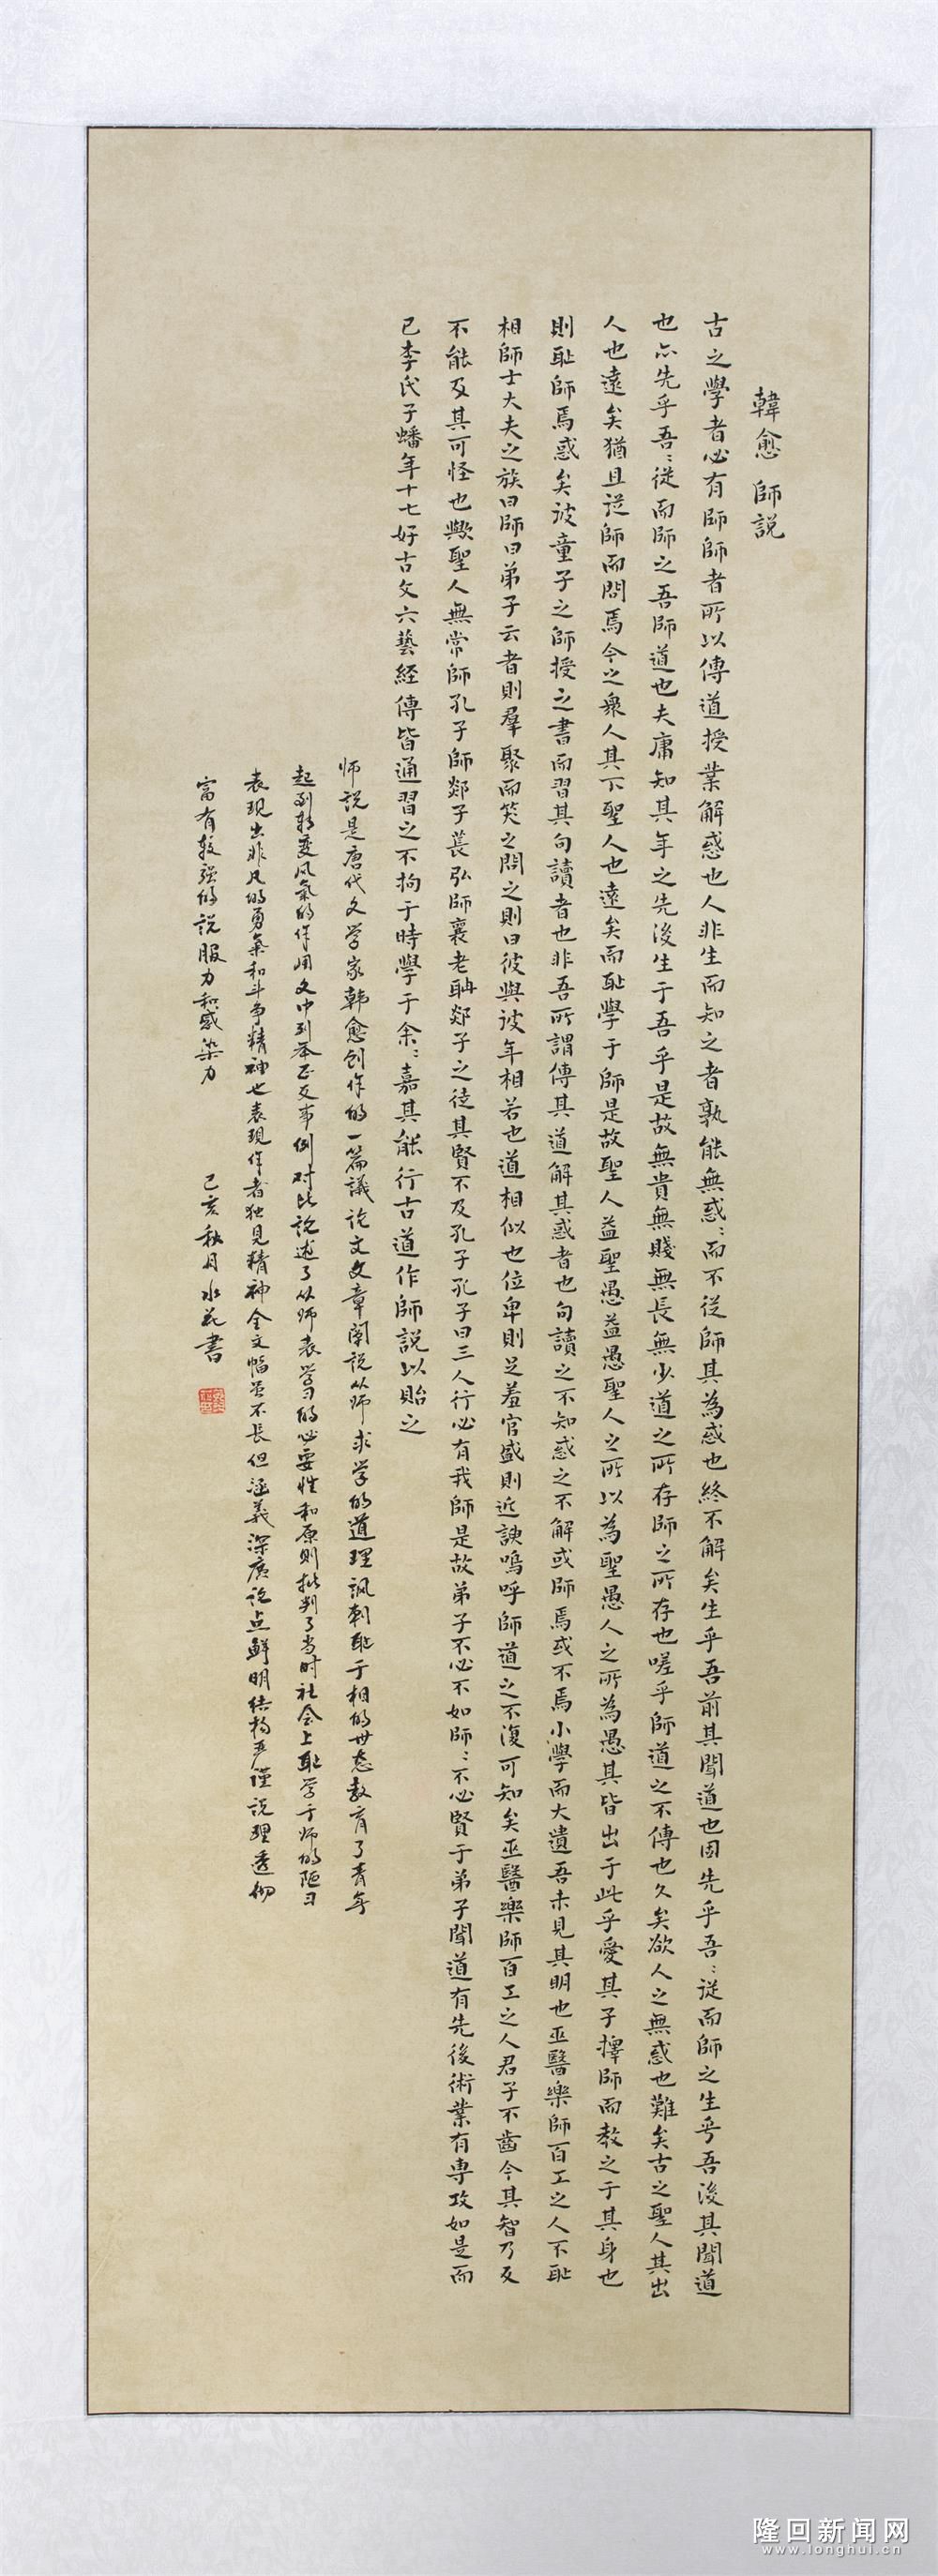 韓愈 師説
古之學者必有師師者所以傳道授業解惑也人非生而知之者孰能無惑：而不從師其為惑也終不解矣生乎吾前其聞道也固先乎吾：從而師之生乎吾後其聞道
也亦先乎吾：從而師之吾師道也夫庸知其年之先後生于吾乎是故無貴無賤無長無少道之所存師之所存也嗟乎師道之不傳也久矣欲人之無惑也難矣古之聖人其出
人也遠矣猶且從師而問焉今之衆人其下聖人也遠矣而耻學于師是故聖人益聖愚益愚聖人之所以為聖愚人之所為愚其皆出于此乎愛其子擇師而教之于其身也
則耻師焉惑矣彼童子之師授之書而習其句讀者也非吾所謂傳其道解其惑者也句讀之不知惑之不解或師焉或不焉小學而大遺吾未見其明也巫醫樂師百工之人不耻
相師士大夫之族曰師曰弟子云者則羣聚而笑之問之則曰彼與彼年相若也道相似也位卑則足羞官盛則近諛嗚呼師道之不復可知矣巫醫樂師百工之人君子不齒今其智乃反
不能及其可怪也歟聖人無常師孔子師郯子萇弘師襄老聃郯子之徒其賢不及孔子孔子曰三人行必有我師是故弟子不必不如師：不必賢于弟子聞道有先後術業有專攻如是而
已李氏子蟠年十七好古文六藝經傳皆通習之不拘于時學于余：嘉其能行古道作師説以貽之
师说是唐代文学家韩愈创作的一篇議论文文章阐说从师求学的道理讽刺耻于相的世态教育了青年
起到转变风氣的作用文中列举正反事例对比论述了从师表学习的必要性和原则批判了当时社会上耻学于师的陋习
表现出非凡的勇氣和斗争精神也表现作者独见精神全文幅虽不长但涵義深廣论点鲜明结构严谨说理透彻
富有较强的说服力和感染力 己亥秋月水花書
隆回新闻网
www.longhui.cn